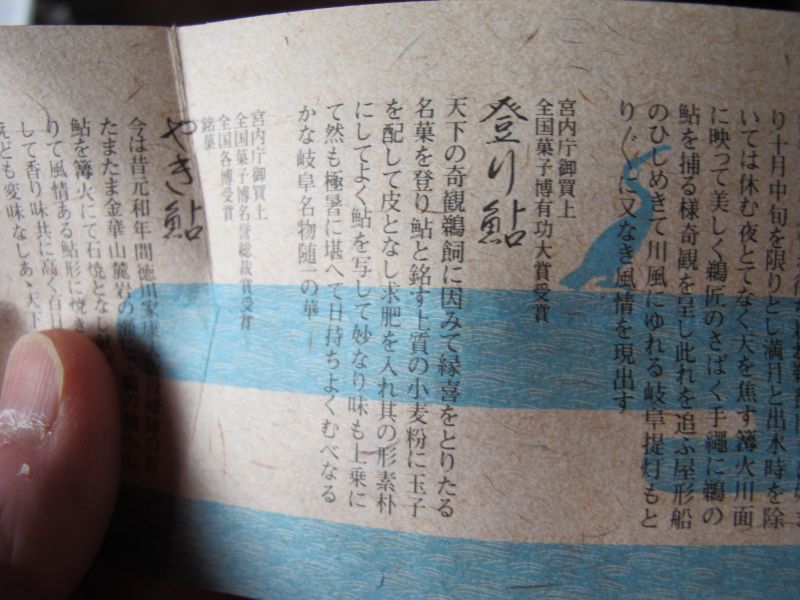 り十月中旬を限りとし満月と出水時を除
いては休む夜とてなく天を焦す篝火川面
に映って美しく鵜匠のさばく手縄に鵜の
鮎を捕る様奇観を呈し此れを追ふ屋形船
のひしめきて川風にゆれる岐阜提灯もと
り〲に又なき風情を現出す
宮内庁御買上
全国菓子博有功大賞受賞
登り鮎
天下の奇観鵜飼に因みて縁喜をとりたる
名菓を登り鮎と銘す上質の小麦粉に玉子
を配して皮となし求肥を入れ其の形素朴
にしてよく鮎を写して妙なり味も上乗に
て然も極暑に堪へて日持ちよくむべなる
かな岐阜名物随一の華
宮内庁御買上
全国菓子博名誉総裁賞受賞
全国各博受賞
銘菓
やき鮎
今は昔元和年間徳川家康
たまたま金華山麓岩の
鮎を篝火にて石焼となし
りて風情ある鮎形に焼き
して香り味共に高く百日
えども変味なしあゝ天下